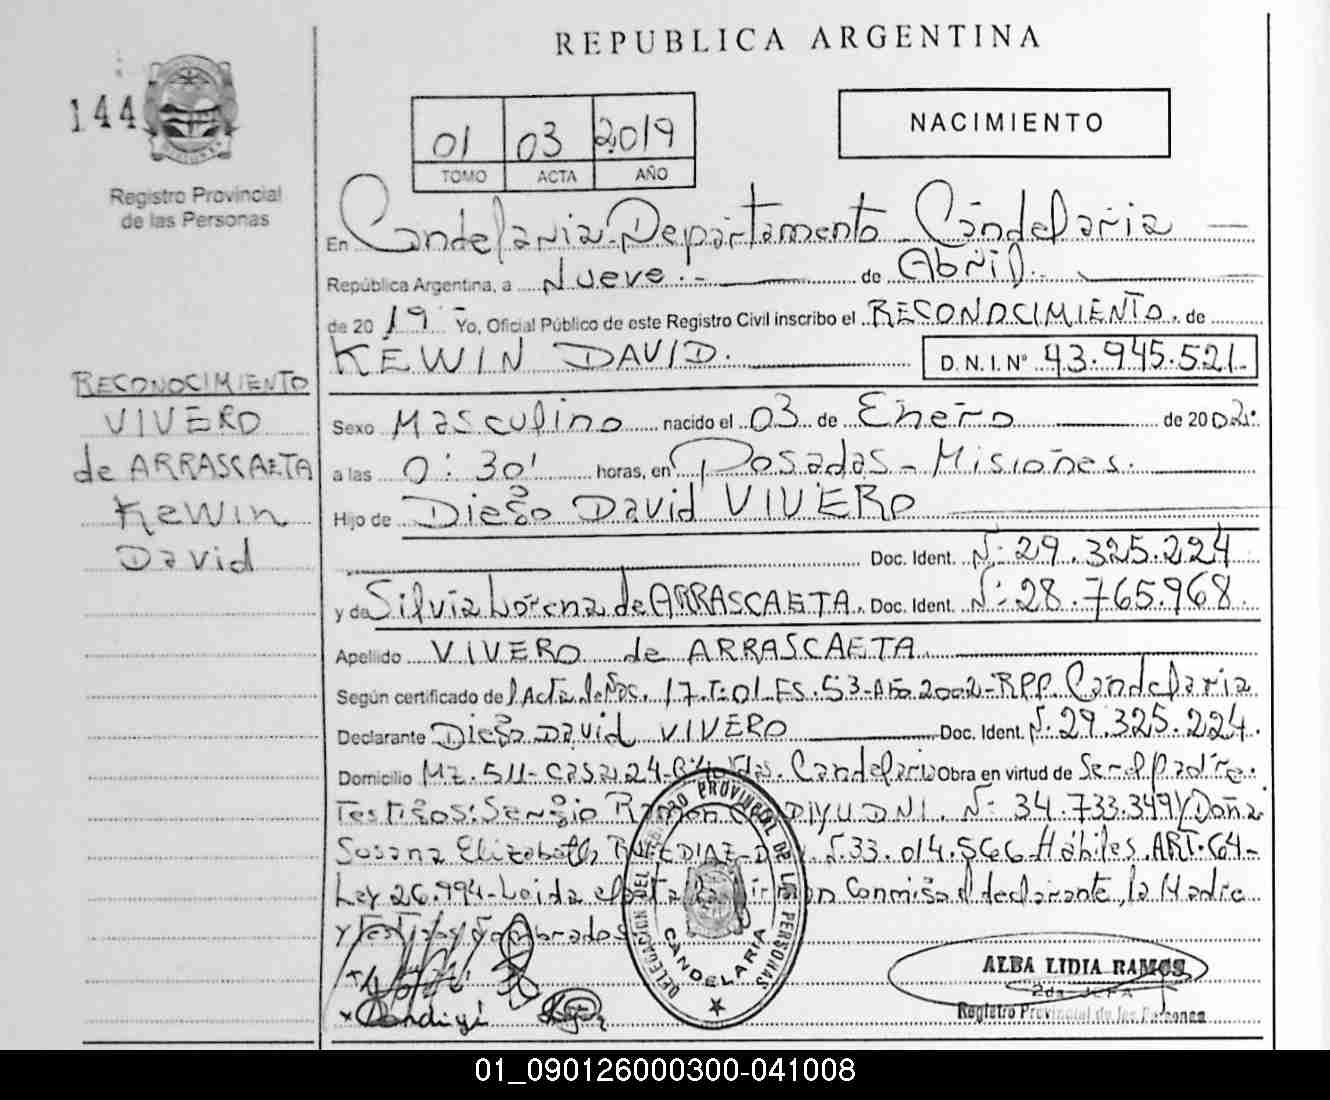 REPUBLICA ARGENTINA
144
Registro Provincial
de las Personas
01 03 2019
TOMO ACTA AÑO
NACIMIENTO
En Candelaria Departamento Candelaria
República Argentina, a Nueve.- de Abril.-
de 2019 Yo, Oficial Público de este Registro Civil inscribo el RECONOCIMIENTO. de
KEWIN DAVID. D.N.I.N° 43.945.521
RECONOCIMIENTO
VIVERO
de ARRASCAETA
Kewin
David
Sexo Masculino nacido el 03 de Enero de 2002.
a las 0:30' horas, en Posadas - Misiones.
Hijo de Diego David VIVERO
Doc. Ident. N: 29.325.224
y de Silvia Lorena de ARRASCAETA. Doc. Ident. N: 28.765.968.
Apellido VIVERO de ARRASCAETA.
Según certificado del Acta de Nac. 17-T:01-FS.53-Año 2002-RPP. Candelaria
Declarante Diego David VIVERO Doc. Ident. N: 29.325.224.
Domicilio Mz.511-casa 24 Candelaria Obra en virtud de Ser el padre.
Testigos: Sergio Ramón DNI. N: 34.733.349 y Doña
Susana Elizabeth 33.014.566 Hábiles ART.64-
Ley 26.994-Leída el Acta conmigo el declarante, la Madre
y Testigos
DELEGACION DEL REGISTRO PROVINCIAL DE LAS PERSONAS
CANDELARIA
ALBA LIDIA RAMOS
2da JEFA
Registro Provincial de las Personas
01_090126000300-041008